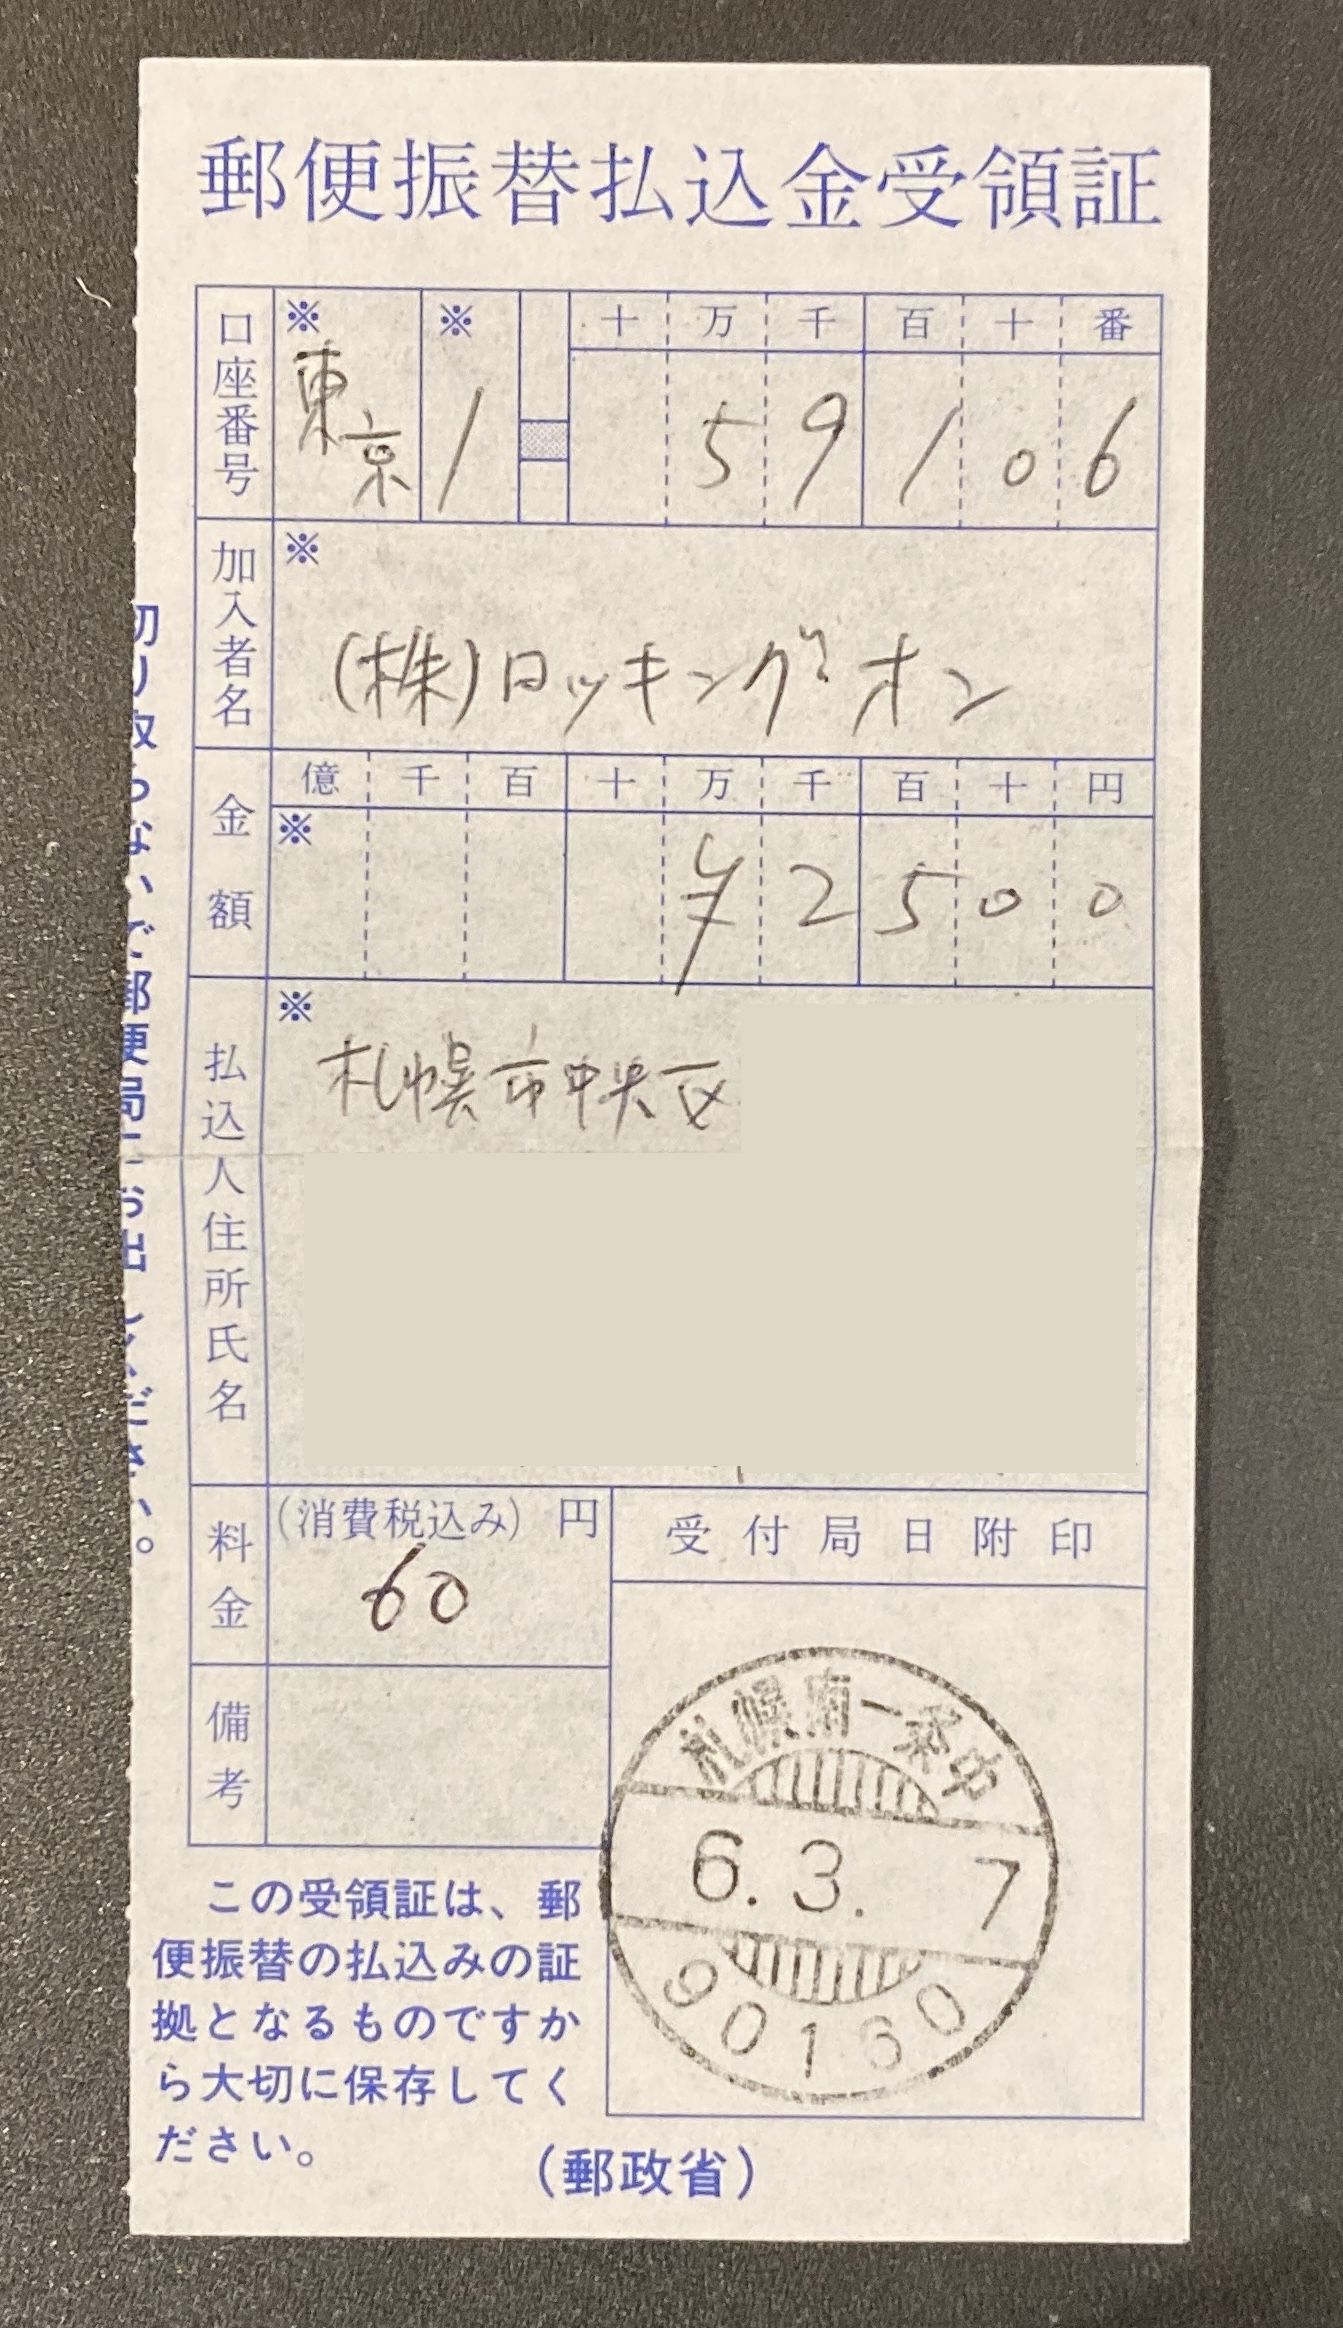 郵便振替払込金受領証
口座番号
※ ※ 十 万 千 百 十 番
東京 1 5 9 1 0 6
加入者名
※
(株)ロッキングオン
金額
億 千 百 十 万 千 百 十 円
※ ¥ 2 5 0 0
払込人住所氏名
※
札幌市中央区
料金
(消費税込み) 円
60
備考
受付局日附印
札幌南一条中
6.3. 7
90160
この受領証は、郵
便振替の払込みの証
拠となるものですか
ら大切に保存してく
ださい。
(郵政省)
切り取らないで郵便局にお出しください。